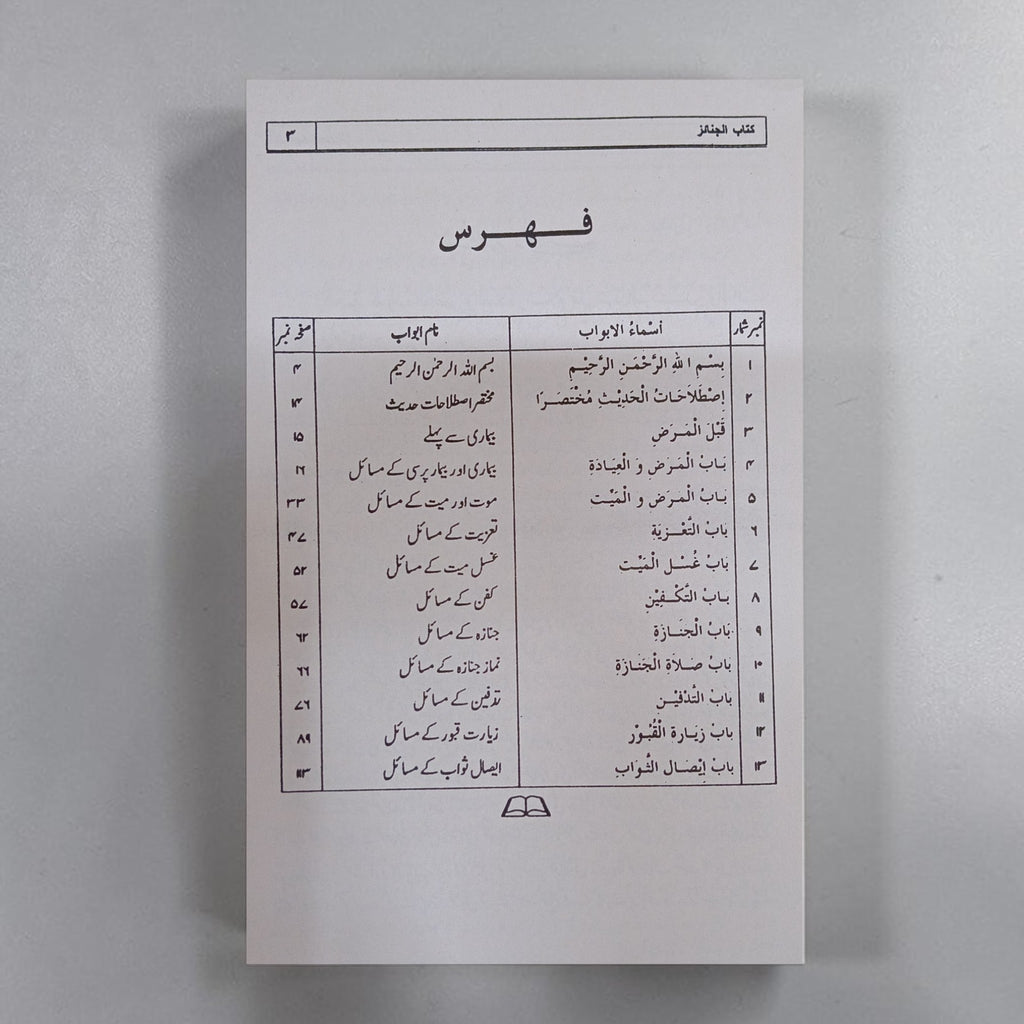 کتاب الجنائز ۳
فہرس
نمبر شمار أسْماءُ الابواب نام ابواب صفحہ نمبر
۱ بِسْمِ اللهِ الرَّحْمَنِ الرَّحِيْمِ بسم اللہ الرحمٰن الرحیم ۴
۲ اِصْطَلَاحَاتُ الْحَدِيْثِ مُخْتَصَرًا مختصر اصطلاحات حدیث ۱۴
۳ قَبْلَ الْمَرَضِ بیماری سے پہلے ۱۵
۴ بَابُ الْمَرَضِ وَ الْعِيَادَةِ بیماری اور بیمار پرسی کے مسائل ۱۶
۵ بَابُ الْمَرَضِ و الْمَيْت موت اور میت کے مسائل ۳۳
۶ بَابُ التَّعْزِيَة تعزیت کے مسائل ۴۷
۷ بَابُ غُسْل الْمَيْت غسل میت کے مسائل ۵۲
۸ بَابُ التَّكْفِيْنِ کفن کے مسائل ۵۷
۹ بَابُ الْجَنَازَةِ جنازہ کے مسائل ۶۲
۱۰ بَابُ صَلَاةِ الْجَنَازَةِ نماز جنازہ کے مسائل ۶۶
۱۱ بَابُ التَّدْفِيْن تدفین کے مسائل ۷۶
۱۲ بَابُ زِيَارة الْقُبُوْر زیارت قبور کے مسائل ۸۹
۱۳ بَابُ إِيْصَال الثَّوَابِ ایصال ثواب کے مسائل ۱۱۳